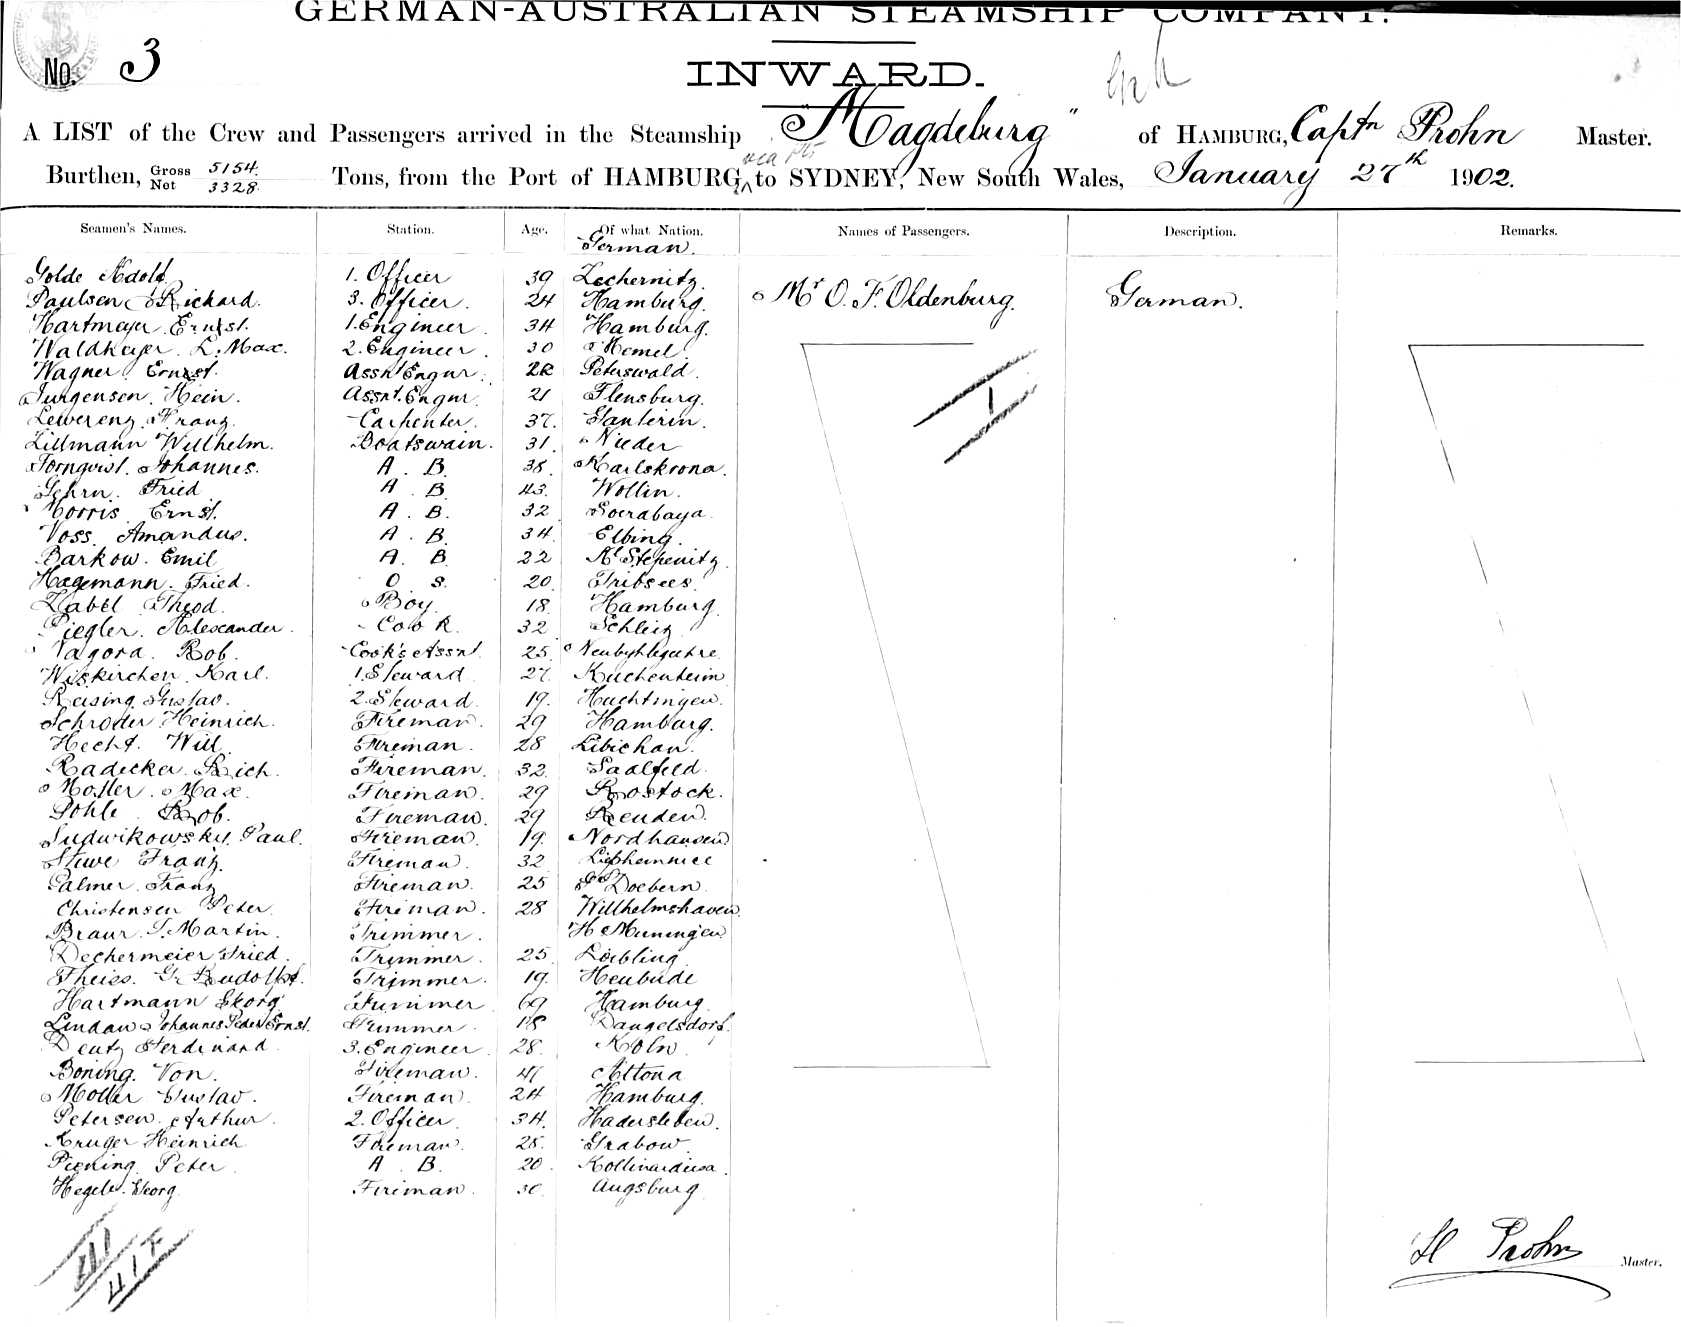 GERMAN-AUSTRALIAN STEAMSHIP COMPANY.
No. 3
INWARD.
A LIST of the Crew and Passengers arrived in the Steamship "Magdeburg" of HAMBURG, Captn Prohn Master.
via
Burthen, Gross 5154. Net 3328. Tons, from the Port of HAMBURG to SYDNEY, New South Wales, January 27th 1902.
Seamen's Names. Station. Age. Of what Nation. Names of Passengers. Description. Remarks.
German.
Golde Adolf 1. Officer 39 Zechernitz.
Paulsen Richard. 3. Officer. 24 Hamburg. Mr O. F. Oldenburg. German.
Hartmeyer Ernst. 1. Engineer. 34 Hamburg.
Waldheyer. L. Max. 2. Engineer. 30 Memel
Wagner. Ernst. Assnt Engnr. 22 Peterswald.
Jurgensen, Hein. Assnt. Engnr. 21 Flensburg.
Lewerenz. Franz. Carpenter. 37. Santerin.
Lillmann Willhelm. Boatswain. 31. Nieder
Tornqvist. Johannes. A. B. 38. Karlskrona.
Gehrn. Fried A. B. 43. Wollin.
Morris Ernst. A. B. 32 Soerabaya.
Voss. Amandus. A. B. 34. Elbing.
Barkow. Emil A. B. 22 Kl Stepenitz.
Hagemann. Fried. O S. 20. Tribsees
Zabel Theod. Boy. 18. Hamburg
Piegler. Alexander. Cook. 32 Schleiz
Nagora. Rob. Cook's Assnt. 25.
Wiskirchen. Karl. 1. Steward. 27. Kuchenheim
Reising Gustav. 2. Steward. 19. Huchtingen.
Schroder Heinrich. Fireman. 29 Hamburg.
Hecht. Will. Fireman. 28 Libichau.
Radecker. Rich. Fireman. 32. Saalfeld.
Moller. Max. Fireman. 29 Rostock.
Pohle. Rob. Fireman. 29 Reuden.
Ludwikowsky. Paul. Fireman. 19. Nordhausen
Stuwe Franz. Fireman. 32
Palmer. Franz Fireman. 25 Doebern.
Christensen Peter. Fireman. 28 Willhelmshaven.
Braur. J. Martin. Trimmer. H. Muningen
Dechermeier Fried. Trimmer. 25. Loibling
Theiss. Gr. Rudolph. Trimmer. 19. Heubude
Hartmann Georg Trimmer 69 Hamburg.
Lindau Johannes Peder Ernst. Trimmer. 18 Dangelsdorf.
Deutz Ferdinand. 3. Engineer. 28. Koln.
Boning. Von. Fireman. 41 Altona
Moller Gustav. Fireman. 24 Hamburg.
Petersen. Arthur. 2. Officer. 34. Hadersleben.
Kruger Heinrich Fireman. 28. Grabow.
Piening. Peter. A. B. 20.
Hegele. Georg. Fireman. 30. Augsburg
H Prohn Master.